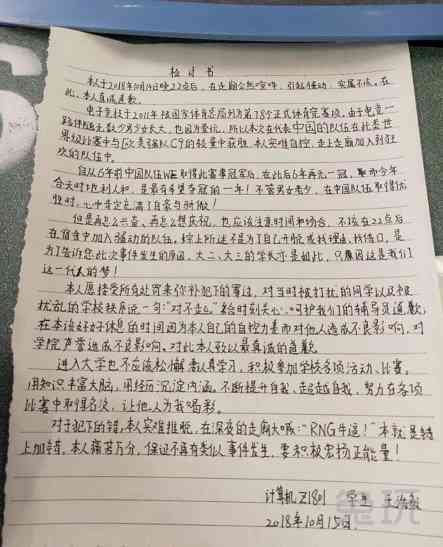 检讨书
本人于2018年10月14日晚22点后，在走廊公然喧哗，引起骚动，实属不该。在
此，本人真诚道歉。
电子竞技于2011年被国家体育总局列为第78个正式体育竞赛项，由于电竞一
路伴随无数少男少女长大，也因为爱玩，所以本次在代表中国的队伍在此类世
界级比赛中与欧美强队C9的较量中获胜，本人实难自控，走上走廊加入到狂
欢的队伍中。
自从6年前中国队伍WE取得此赛事冠军后，在此后6年再无一冠，取而今年
合天时地利人和，是最有希望夺冠的一年！不管男女老少，在中国队伍取得优
胜时，心中肯定充满了自豪与骄傲！
但是再怎么兴奋，再怎么想庆祝，也应该注意时间和场合，不该在22点后
在宿舍中加入骚动的队伍，综上所述不是为了自己开脱或找理由，找借口，是
为了告诉您此次事件发生的原因，大二、大三的学长亦是如此，只原因这是我们
这一代表的梦！
本人愿接受所有处罚来弥补犯下的事过，对当时被打扰的同学以及被
扰乱的学校秩序说一句："对不起"。给时刻关心、呵护我们的辅导员道歉，
在本该好好休息的时间因为本人自己的自控力差而对他人造成不良影响，对
学院声誉造成不良影响，对此本人致以最真诚的道歉。
进入大学也不应该松懈，认真学习，积极参加学校各项活动、比赛。
用知识丰富大脑，用经历沉淀内涵，不断提升自我，超越自我，努力在各项
比赛中取得名次，让他人为我喝彩。
对于犯下的错，本人实难推脱，在深夜的走廊大喊："RNG牛逼！"本就是错
上加错，本人痛苦万分，保证不再有类似事件发生，要积极宏扬正能量！
计算机Z1801 学生 王
2018年10月15日